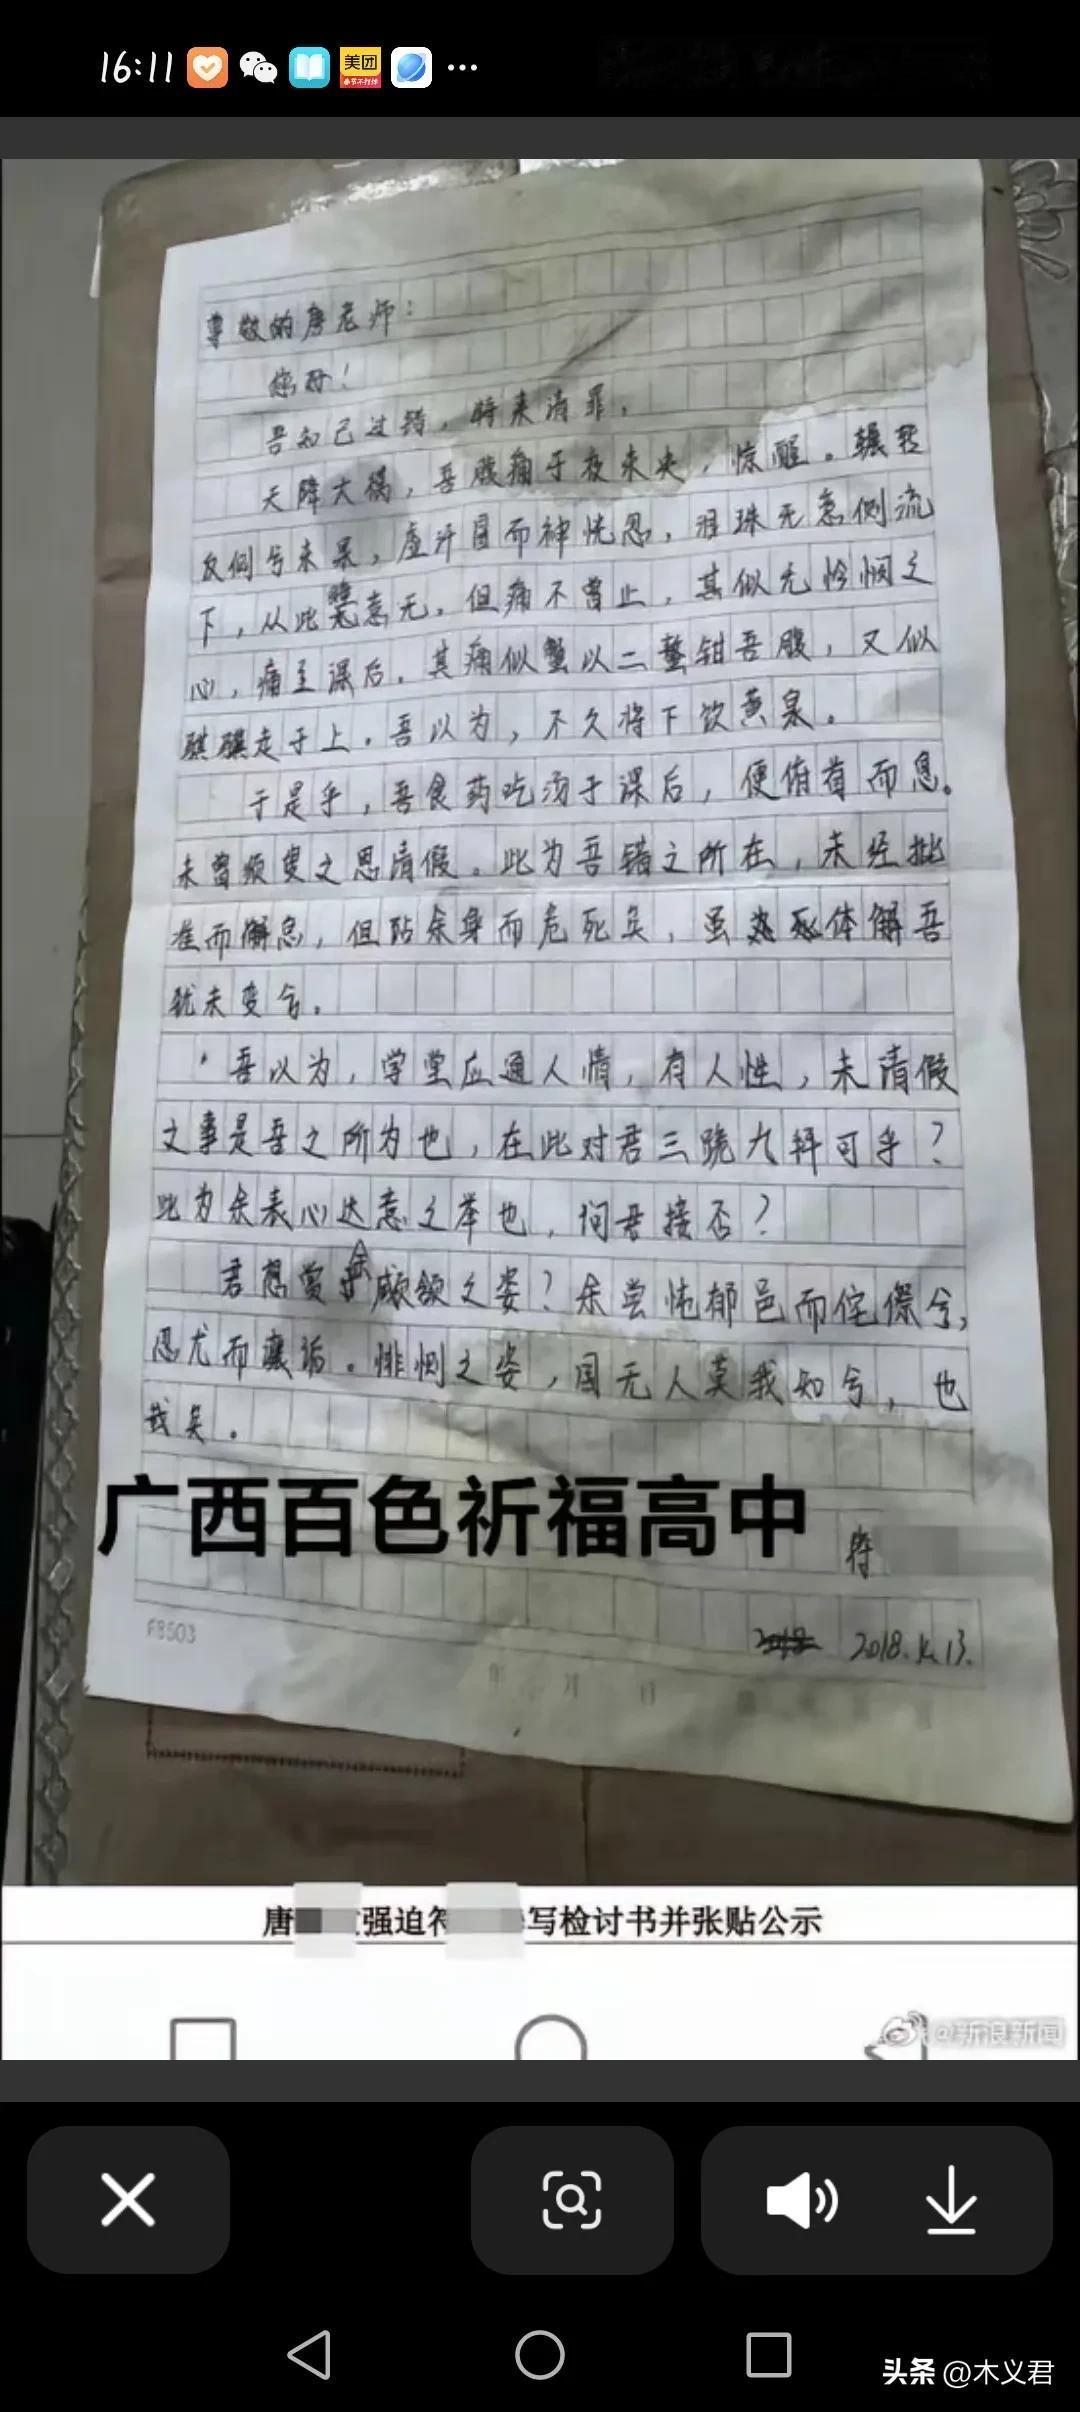 16:11
美团
尊敬的唐老师：
您好！
吾知己过错，特来请罪。
天降大祸，吾腹痛于夜未央，惊醒。辗转
反侧兮未果，虚汗冒而神恍忽，泪珠无意侧流
下，从此意无，但痛不曾止，其似无怜悯之
心，痛至课后。其痛似蟹以二螯钳吾腹，又似
骐骥走于上。吾以为，不久将下饮黄泉。
于是乎，吾食药吃汤于课后，便俯首而息。
未曾须臾之思请假。此为吾错之所在，未经批
准而懈息，但阽余身而危死矣，虽体解吾
犹未变兮。
吾以为，学堂应通人情，有人性，未请假
之事是吾之所为也，在此对君三跪九拜可乎？
此为余表心达意之举也，问君接否？
君想赏余顑颔之姿？余尝忳郁邑而侘傺兮，
忍尤而攘诟。悱恻之姿，国无人莫我知兮，也
哉矣。
广西百色祈福高中
符
F8503
2018.12.13.
年 月 日
唐强迫符写检讨书并张贴公示
@新浪新闻
头条 @木义君